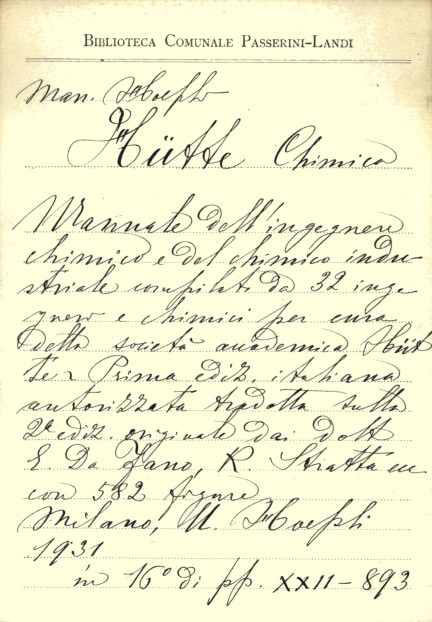 BIBLIOTECA COMUNALE PASSERINI-LANDI
Man. Hoepli
Hütte Chimica
Manuale dell'ingegnere
chimico e del chimico indu-
striale compilato da 32 inge
gneri e chimici per cura
della società accademica Hüt
te. Prima ediz. italiana
autorizzata tradotta sulla
2ª ediz. originale dai dott
E. Da Fano, R. Stratta ecc
con 582 figure
Milano, U. Hoepli
1931
in 16° di pp. XXII-893